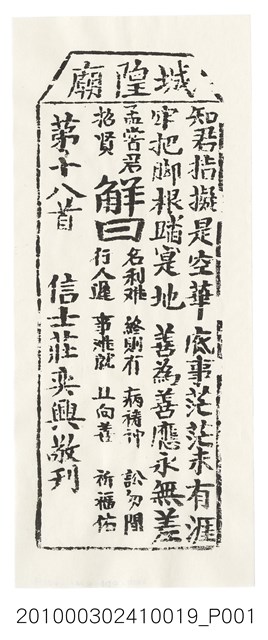 城隍廟
知君指擬是空華底事茫茫未有涯
牢把脚根踏寔地善為善應永無差
孟嘗君
招賢
解曰
名利难 終則有 病禱神 訟勿聞
行人遲 事难就 且向善 祈福佑
苐十八首
信士莊奕興敬刊
201000302410019_P001